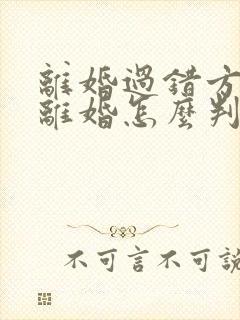 離婚過錯方
離婚怎麼判
不可言不可說